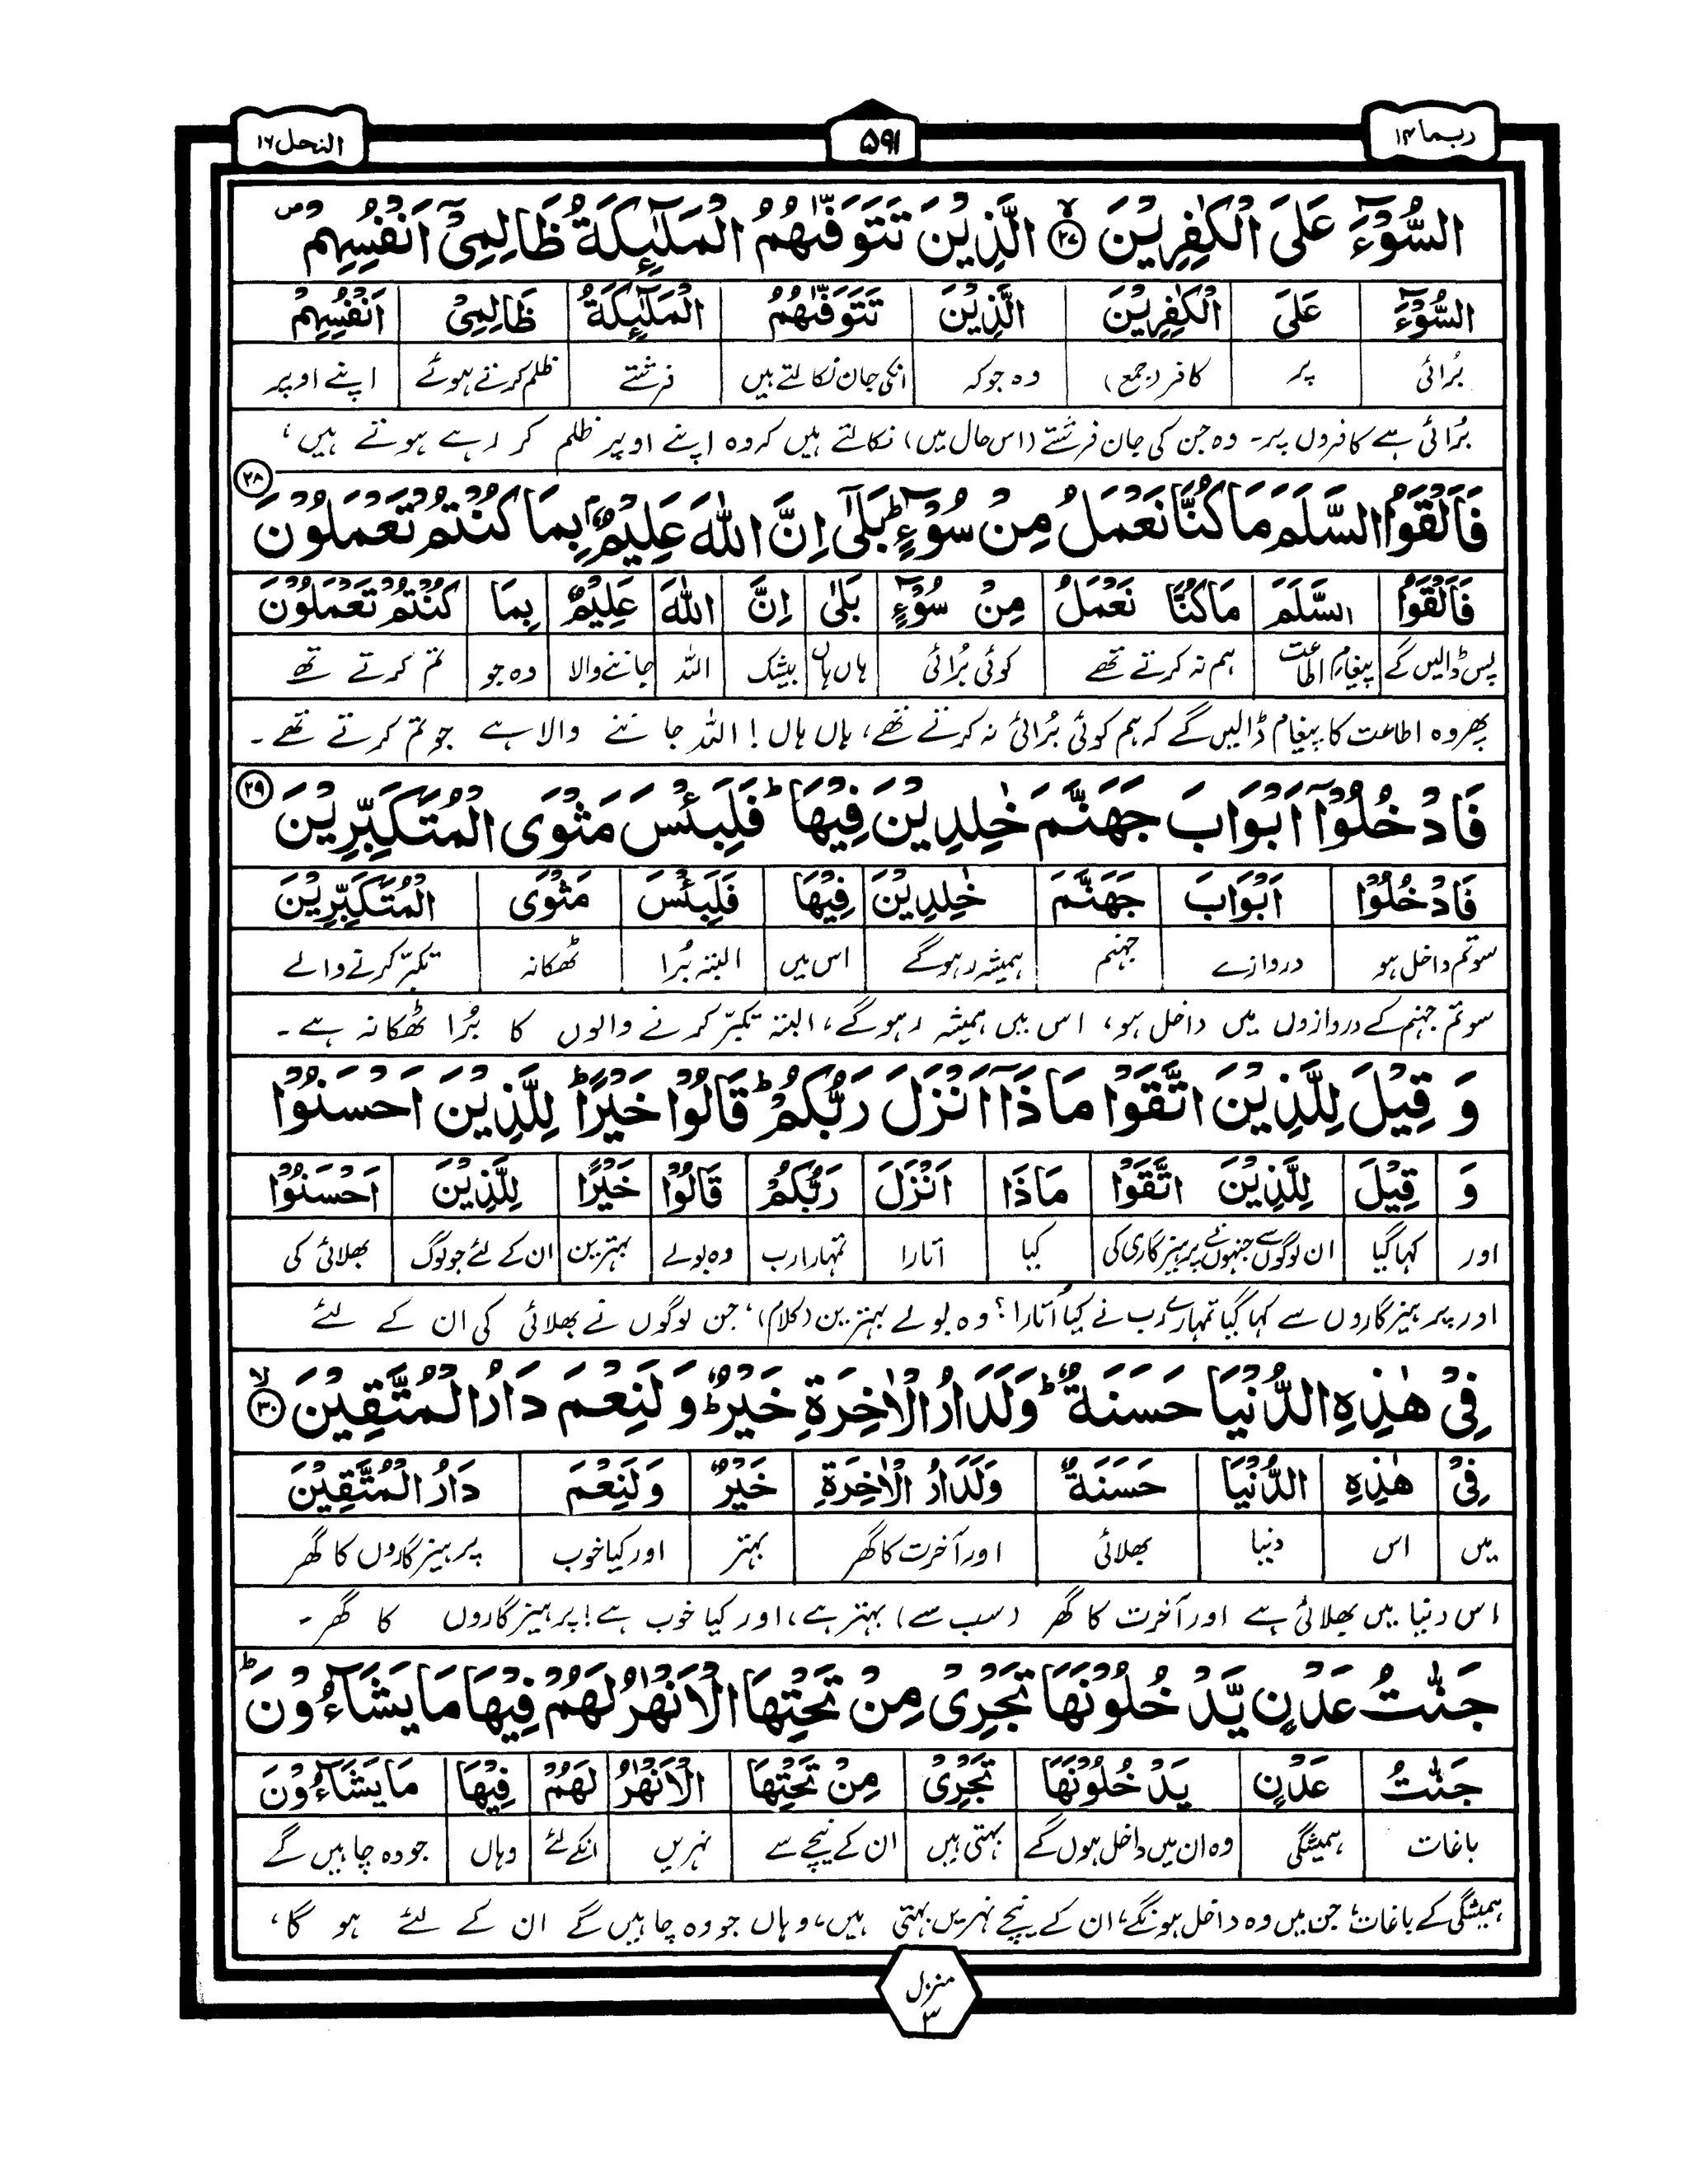 ربما ۱۴
۵۹۱
النحل ۱۶
السُّوْٓءَ عَلَى الْكٰفِرِيْنَ ﴿۲۷﴾ الَّذِيْنَ تَتَوَفّٰىهُمُ الْمَلٰٓئِكَةُ ظَالِمِيْٓ اَنْفُسِهِمْ ۪
السُّوْٓءَ عَلَى الْكٰفِرِيْنَ الَّذِيْنَ تَتَوَفّٰىهُمُ الْمَلٰٓئِكَةُ ظَالِمِيْٓ اَنْفُسِهِمْ
بُرائی پر کافر (جمع) وہ جو کہ انکی جان نکالتے ہیں فرشتے ظلم کرتے ہوئے اپنے اوپر
بُرائی ہے کافروں پر۔ وہ جن کی جان فرشتے (اس حال میں) نکالتے ہیں کہ وہ اپنے اوپر ظلم کر رہے ہوتے ہیں،
فَاَلْقَوُا السَّلَمَ مَا كُنَّا نَعْمَلُ مِنْ سُوْٓءٍ ؕ بَلٰٓى اِنَّ اللّٰهَ عَلِيْمٌۢ بِمَا كُنْتُمْ تَعْمَلُوْنَ ﴿۲۸﴾
فَاَلْقَوُا السَّلَمَ مَا كُنَّا نَعْمَلُ مِنْ سُوْٓءٍ بَلٰى اِنَّ اللّٰهَ عَلِيْمٌۢ بِمَا كُنْتُمْ تَعْمَلُوْنَ
پس ڈالیں گے پیغام اطاعت ہم نہ کرتے تھے کوئی بُرائی ہاں ہاں بیشک اللہ جاننے والا وہ جو تم کرتے تھے
پھر وہ اطاعت کا پیغام ڈالیں گے کہ ہم کوئی بُرائی نہ کرتے تھے، ہاں ہاں! اللہ جاننے والا ہے جو تم کرتے تھے۔
فَادْخُلُوْٓا اَبْوَابَ جَهَنَّمَ خٰلِدِيْنَ فِيْهَا ؕ فَلَبِئْسَ مَثْوَى الْمُتَكَبِّرِيْنَ ﴿۲۹﴾
فَادْخُلُوْٓا اَبْوَابَ جَهَنَّمَ خٰلِدِيْنَ فِيْهَا فَلَبِئْسَ مَثْوَى الْمُتَكَبِّرِيْنَ
سو تم داخل ہو دروازے جہنم ہمیشہ رہو گے اس میں البتہ بُرا ٹھکانہ تکبّر کرنے والے
سو تم جہنم کے دروازوں میں داخل ہو، اس میں ہمیشہ رہو گے، البتہ تکبّر کرنے والوں کا بُرا ٹھکانہ ہے۔
وَ قِيْلَ لِلَّذِيْنَ اتَّقَوْا مَاذَآ اَنْزَلَ رَبُّكُمْ ؕ قَالُوْا خَيْرًا ؕ لِلَّذِيْنَ اَحْسَنُوْا
وَ قِيْلَ لِلَّذِيْنَ اتَّقَوْا مَاذَا اَنْزَلَ رَبُّكُمْ قَالُوْا خَيْرًا لِلَّذِيْنَ اَحْسَنُوْا
اور کہا گیا ان لوگوں سے جنہوں نے پرہیزگاری کی کیا اتارا تمہارا رب وہ بولے بہترین ان کے لئے جو لوگ بھلائی کی
اور پرہیزگاروں سے کہا گیا تمہارے رب نے کیا اُتارا؟ وہ بولے بہترین (کلام)، جن لوگوں نے بھلائی کی ان کے لئے
فِيْ هٰذِهِ الدُّنْيَا حَسَنَةٌ ؕ وَلَدَارُ الْاٰخِرَةِ خَيْرٌ ؕ وَلَنِعْمَ دَارُ الْمُتَّقِيْنَ ﴿۳۰﴾ ۙ
فِيْ هٰذِهِ الدُّنْيَا حَسَنَةٌ وَلَدَارُ الْاٰخِرَةِ خَيْرٌ وَلَنِعْمَ دَارُ الْمُتَّقِيْنَ
میں اس دنیا بھلائی اور آخرت کا گھر بہتر اور کیا خوب پرہیزگاروں کا گھر
اس دنیا میں بھلائی ہے اور آخرت کا گھر (سب سے) بہتر ہے، اور کیا خوب ہے! پرہیزگاروں کا گھر۔
جَنّٰتُ عَدْنٍ يَّدْخُلُوْنَهَا تَجْرِيْ مِنْ تَحْتِهَا الْاَنْهٰرُ لَهُمْ فِيْهَا مَا يَشَآءُوْنَ ؕ
جَنّٰتُ عَدْنٍ يَدْخُلُوْنَهَا تَجْرِيْ مِنْ تَحْتِهَا الْاَنْهٰرُ لَهُمْ فِيْهَا مَا يَشَآءُوْنَ
باغات ہمیشگی وہ ان میں داخل ہوں گے بہتی ہیں ان کے نیچے سے نہریں انکے لئے وہاں جو وہ چاہیں گے
ہمیشگی کے باغات، جن میں وہ داخل ہونگے، ان کے نیچے نہریں بہتی ہیں، وہاں جو وہ چاہیں گے ان کے لئے ہو گا،
منزل ۳